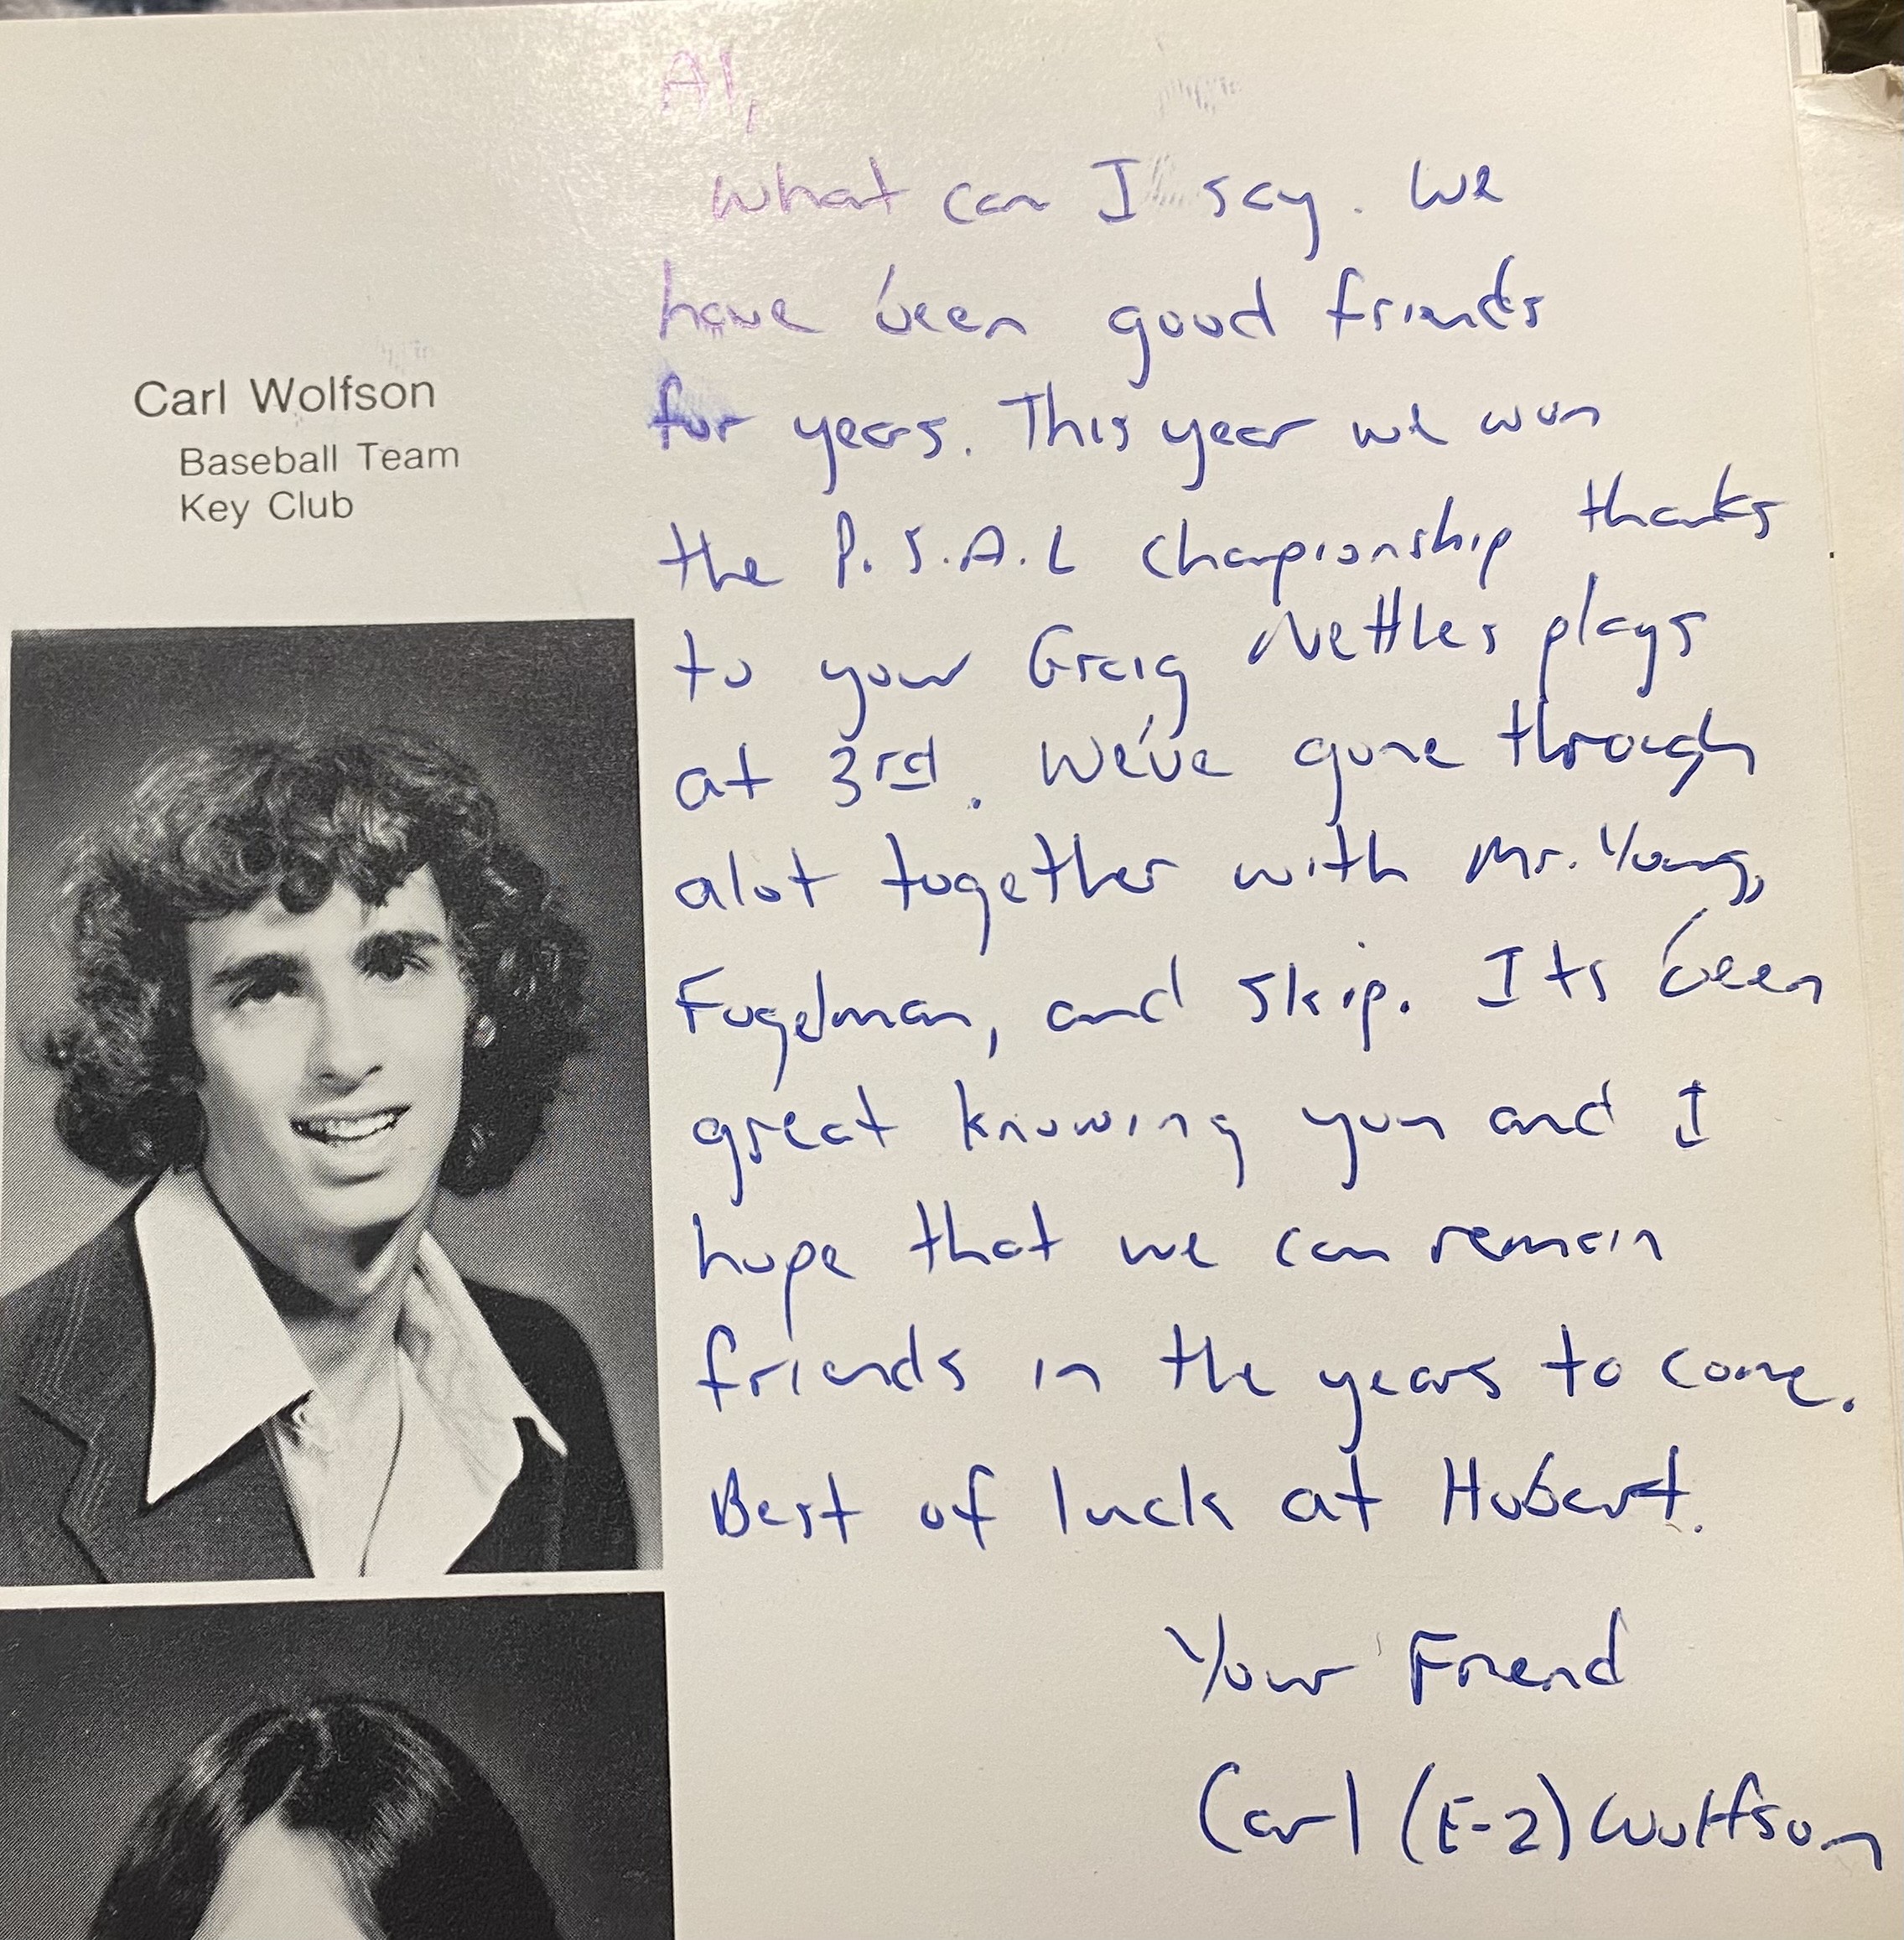 Carl Wolfson
Baseball Team
Key Club
Al,
What can I say. We
have been good friends
for years. This year we won
the P.S.A.L championship thanks
to your Graig Nettles plays
at 3rd. We've gone through
alot together with Mr. Young,
Fugelman, and Skip. Its been
great knowing you and I
hope that we can remain
friends in the years to come.
Best of luck at Hobart.
Your Friend
Carl (E-2) Wolfson